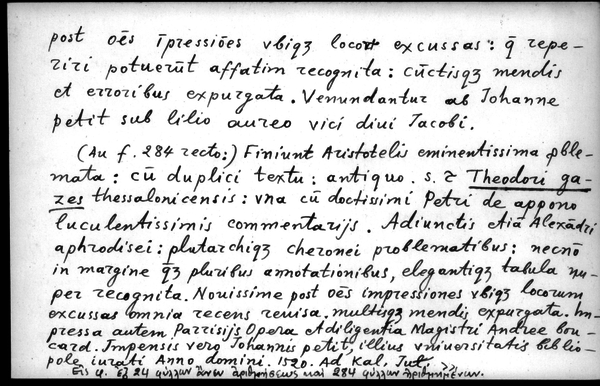 post oēs īpressiōes vbiqʒ locorū excussas: q̄ repe-
riri potuerūt affatim recognita: cūctisqʒ mendis
et erroribus expurgata. Venundantur ab Johanne
petit sub lilio aureo vici diui Jacobi.
(Au f. 284 recto:) Finiunt Aristotelis eminentissima ꝓble-
mata: cū duplici textu: antiquo. s. ⁊ Theodori ga-
zes thessalonicensis: vna cū doctissimi Petri de appono
luculentissimis commentarijs. Adiunctis etiā Alexādri
aphrodisei: plutarchiqʒ cheronei problematibus: necnō
in margine qʒ pluribus annotationibus, elegantiqʒ tabula nu-
per recognita. Nouissime post oēs impressiones vbiqʒ locorum
excussas omnia recens reuisa. multisqʒ mendis expurgata. Im-
pressa autem Parrisijs Opera et diligentia Magistri Andree bou-
card. Impensis vero Johannis petit, illius vniuersitatis biblio-
pole iurati Anno domini. 1520. Ad Kal. Jul.
Εἰς φ. Ἐξ 24 φύλλων ἄνευ ἀριθμήσεως καὶ 284 φύλλων ἠριθμημένων.